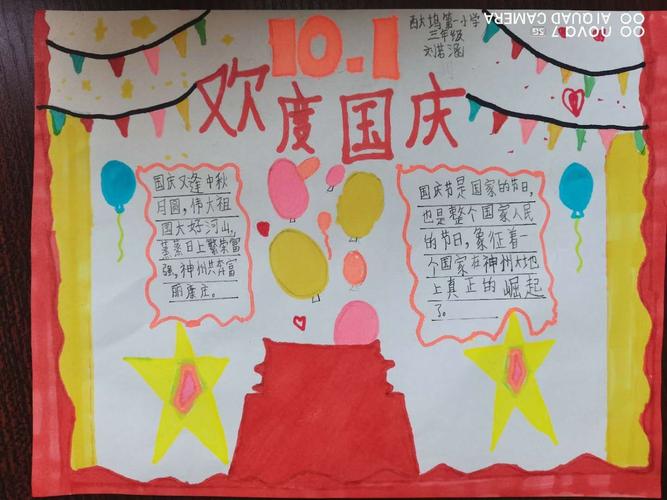 10.1
西大坞第一小学
三年级
刘若涵
欢度国庆
国庆又逢中秋
月圆,伟大祖
国大好河山,
蒸蒸日上繁荣富
强,神州共奔富
丽康庄。
国庆节是国家的节日,
也是整个国家人民
的节日,象征着一
个国家在神州大地
上真正的崛起
了。
nova 7 5G
AI QUAD CAMERA